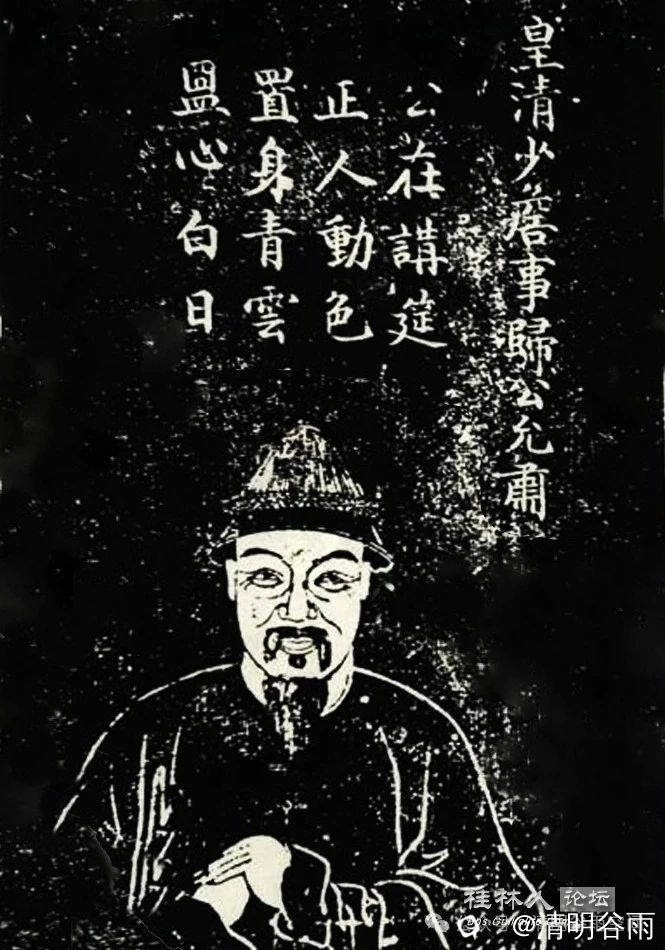 皇清少詹事歸公允肅
公在講筵
正人動色
置身青雲
盟心白日
桂林人论坛
@清明谷雨